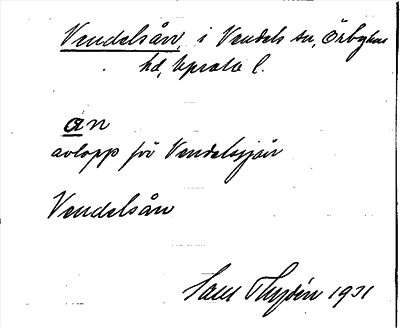 Vendelsån, i Vendels sn, Örbyhus
hd, Upsala l.
an
avlopp för Vendelsjön
Vendelsån
1931